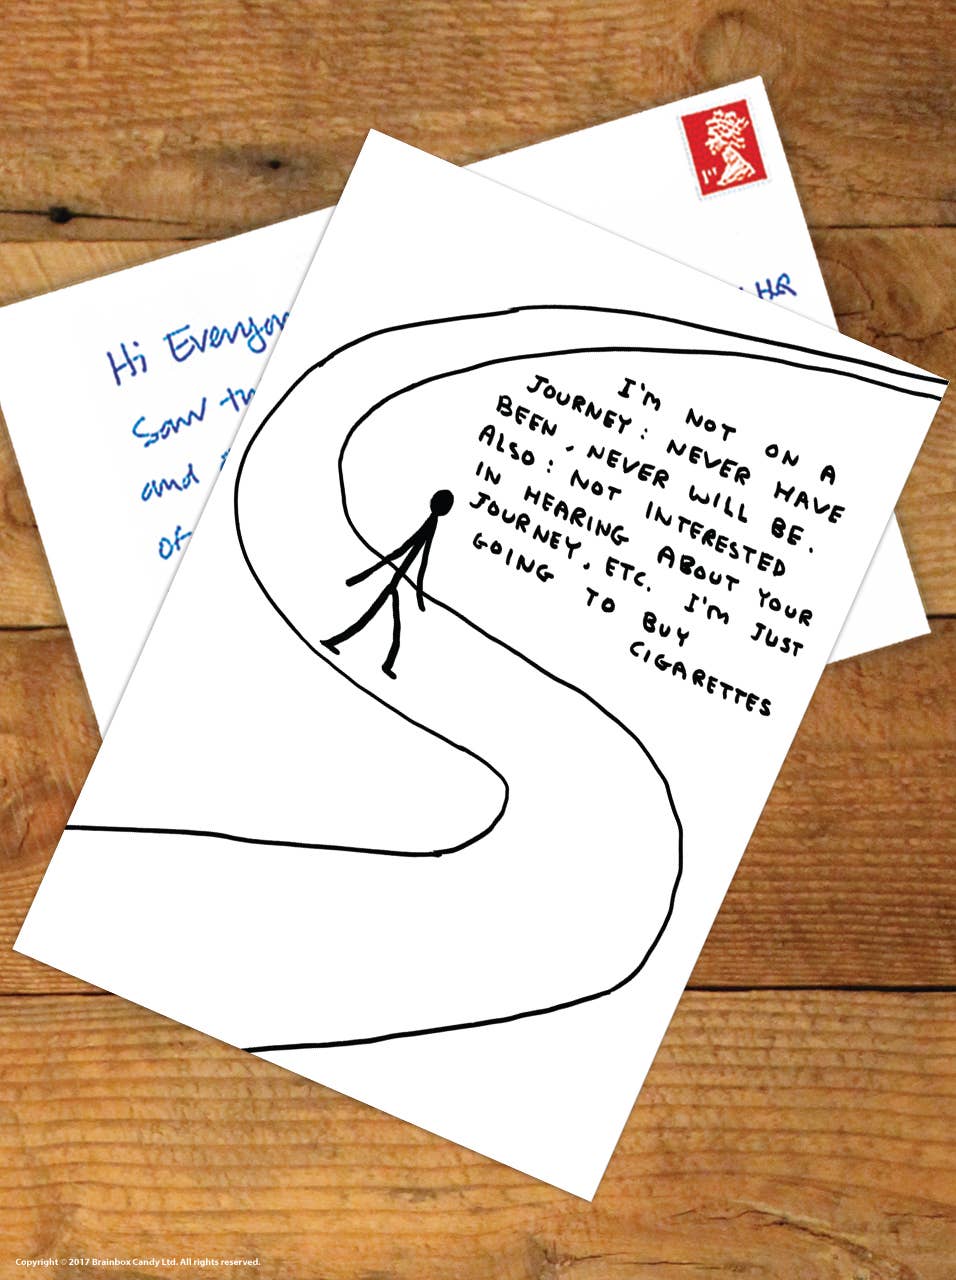 I'M NOT ON A
JOURNEY: NEVER HAVE
BEEN, NEVER WILL BE.
ALSO: NOT INTERESTED
IN HEARING ABOUT YOUR
JOURNEY, ETC. I'M JUST
GOING TO BUY
CIGARETTES
Hi Everyon
Saw th
and
of
HQ
1ST
Copyright © 2017 Brainbox Candy Ltd. All rights reserved.